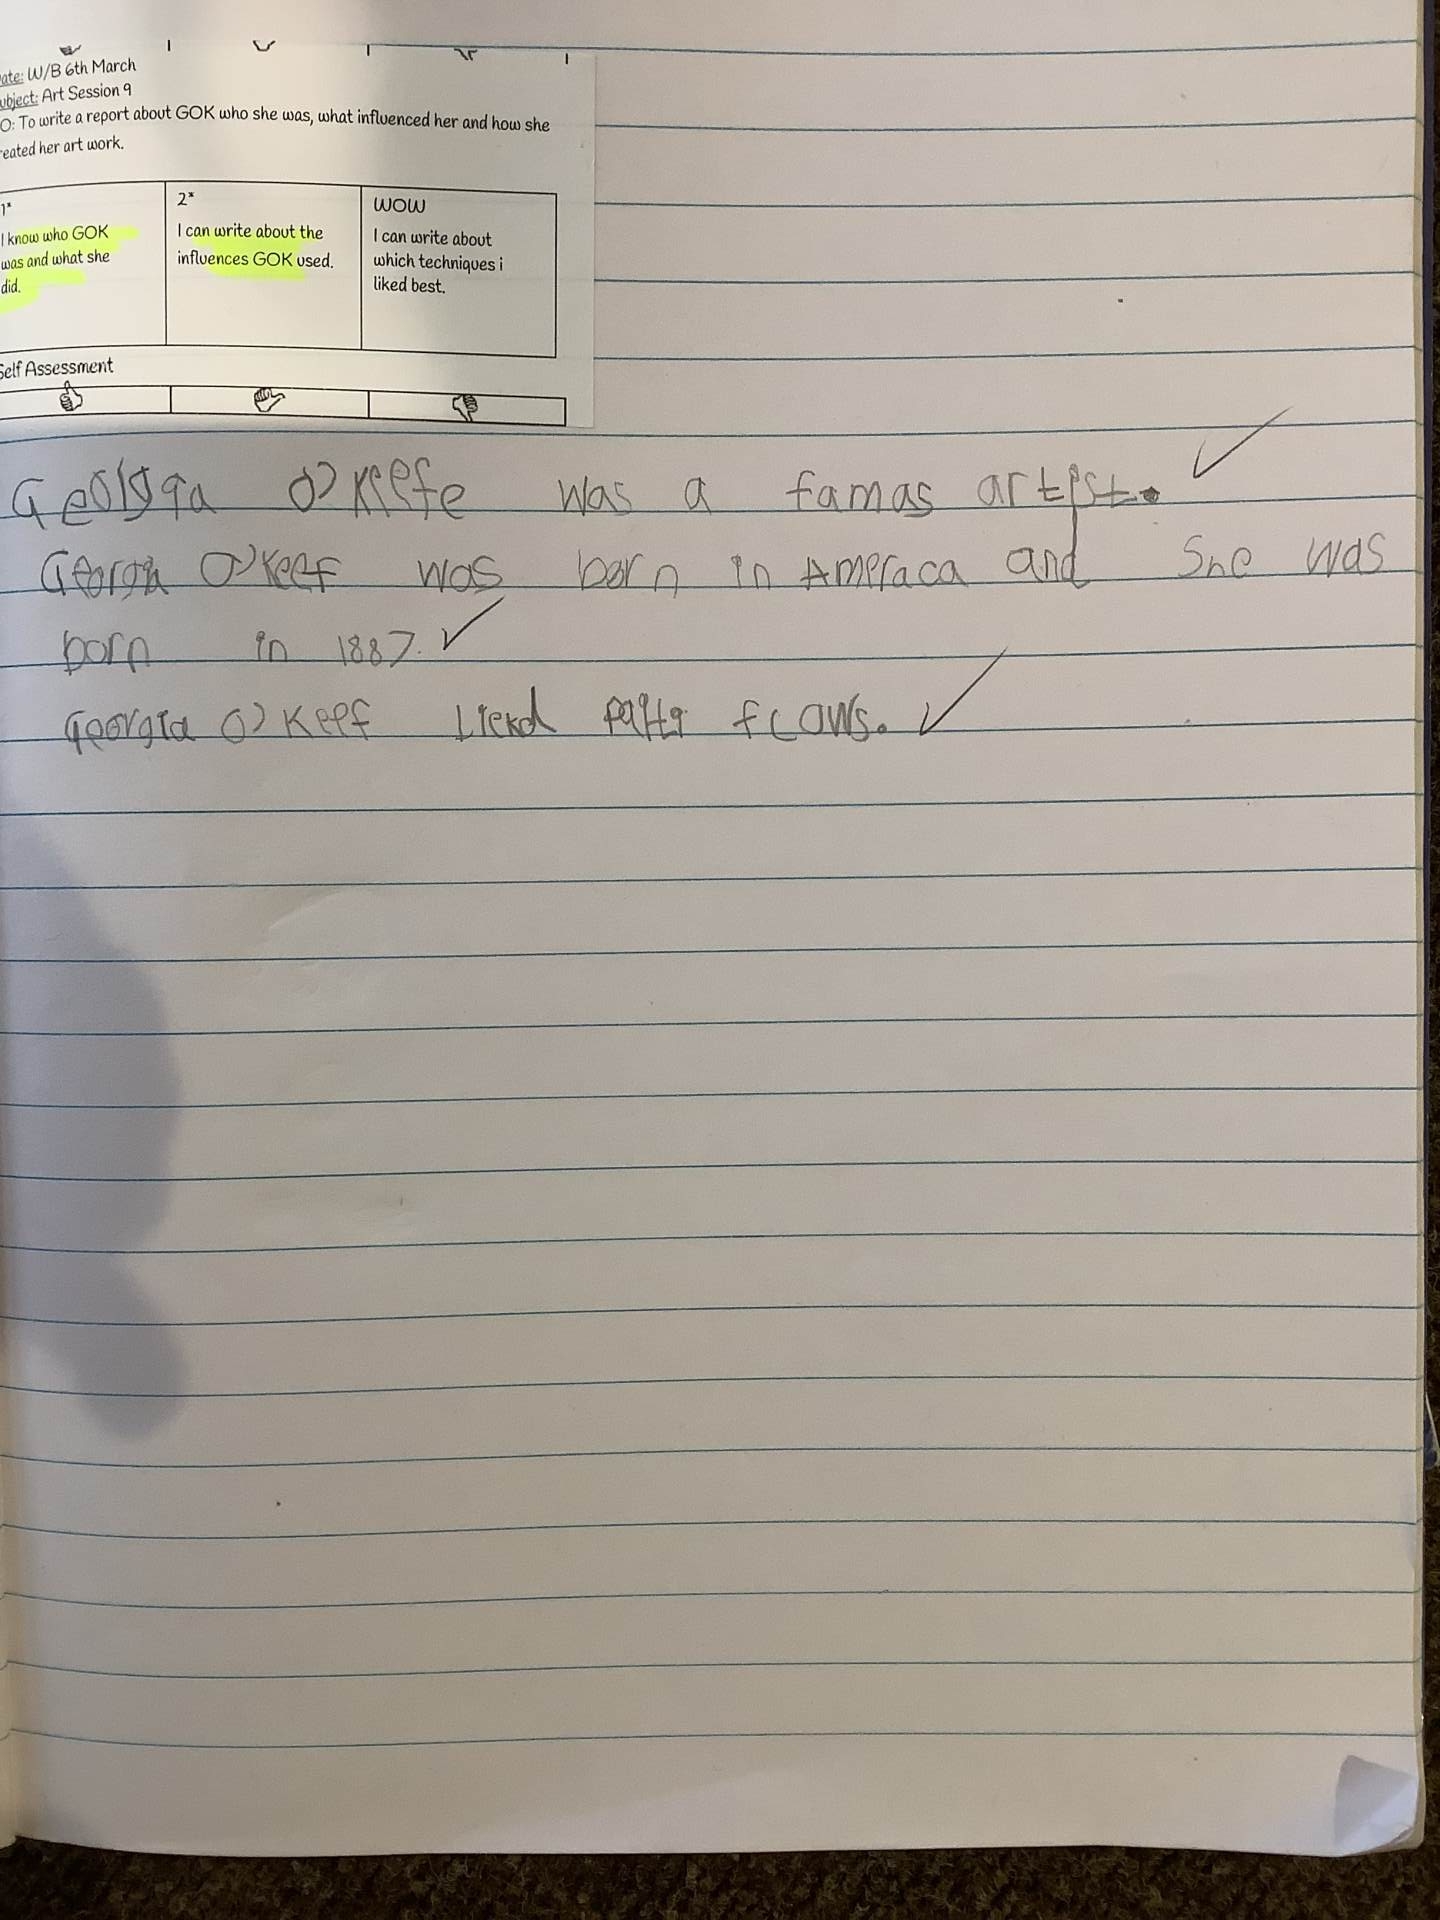 ate: W/B 6th March
ubject: Art Session 9
O: To write a report about GOK who she was, what influenced her and how she
reated her art work.
1*
I know who GOK
was and what she
did.
2*
I can write about the
influences GOK used.
WOW
I can write about
which techniques i
liked best.
Self Assessment
Georgia O'Kefe was a famas artist.
Georgia O'Keef was born in Ameraca and She was
born in 1887.
Georgia O'Keef Liekd flaws.